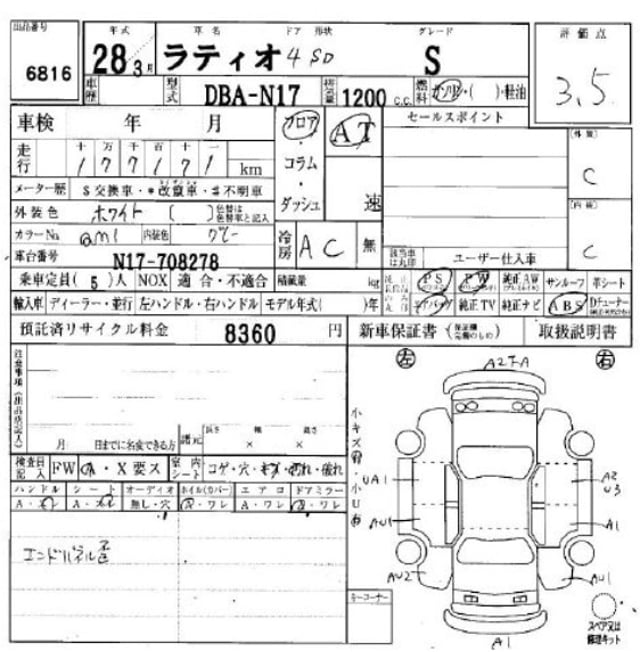 出品番号 年式 車名 ドア 形状 グレード 評価点
6816 28 3月 ラティオ 4 SD S 3.5
車歴 型式 DBA-N17 排気量 1200 c.c. 燃料 ガソリン・( )・軽油
車検 年 月 フロア AT セールスポイント (外装)
走行 十 万 千 百 十 一
1 7 7 1 7 1 km コラム C
メーター歴 $ 交換車・*改竄車・#不明車
外装色 ホワイト ( ) 色替は色替車と記入 ダッシュ 速 (内装)
カラーNo. qm1 内装色 グレー 冷房 AC 無 C
車台番号 N17-708278 該当車は丸印 ユーザー仕入車
乗車定員( 5 )人 NOX 適合・不適合 積載量 kg PS PW 純正AW サンルーフ 革シート
輸入車 ディーラー・並行 左ハンドル・右ハンドル モデル年式( )年 エアバッグ 純正TV 純正ナビ ABS Dチューナー
預託済リサイクル料金 8360 円 新車保証書 取扱説明書
注意事項(出品店記入) 左 右
A2 A
小キズ有
月 日までに名変できる方 諸元 長さ 幅 高さ
× ×
検査員記入 FW A・X要ス 室内シート コゲ・穴・キズ・汚れ・破れ 小U有 UA1 A2
U3
ハンドル シート オーディオ ホイル(カバー) エアロ ドアミラー
A・ 無し・穴 ワレ A・ワレ ワレ AU1 A1
エンドパネル歪
AU2 AU1
キーコーナー
スペア又は
修理キット
A1